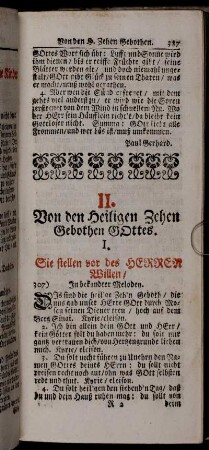 Von den H. Zehen Gebothen. 387
GOttes Wort sich übt: Lufft und Sonne wird
ihm dienen/ biß er reiffe Früchte gibt/ seine
Blätter werden alt/ und doch niemahl ungestalt/
GOtt gibt Glück zu seinen Thaten/ was
er macht/ muß wohl gerathen.
4. Aber wen die Sünd erfreuet/ mit dem
geht's viel anders zu/ er wird wie die Spreu
zerstreuet von dem Wind in schnellem Nu. Wo
der HErr sein Häufflein richt't/ da bleibt kein
Gottloser nicht. Summa: GOtt liebt alle
Frommen/ und wer böß ist/ muß umkommen.
Paul Gerhard.
II.
Von den Heiligen Zehen
Gebothen GOttes.
I.
Sie stellen vor des HERREN
Willen/
207) In bekandter Melodey.
sind die heil'ge Zeh'n Geboth/ die
uns gab unser HErre GOtt durch Mosen
seinen Diener treu/ hoch auf dem
Berg Sinai. Kyrie/ eleison.
2. Ich bin allein dein GOtt und HErr/
kein Götter solt du haben mehr/ du solt mir
gantz vertrauen dich/ von Hertzengrunde lieben
mich. Kyrie/ eleison.
3. Du solt nicht führen zu Unehrn den Namen
GOttes deines HErrn; du solt nicht
preisen recht noch gut/ ohn was GOtt selbsten
redt und thut. Kyrie/ eleison.
4. Du solt heil'gen den siebend'n Tag/ daß
du und dein Hauß ruhen mag: du solt von
R 2 deim